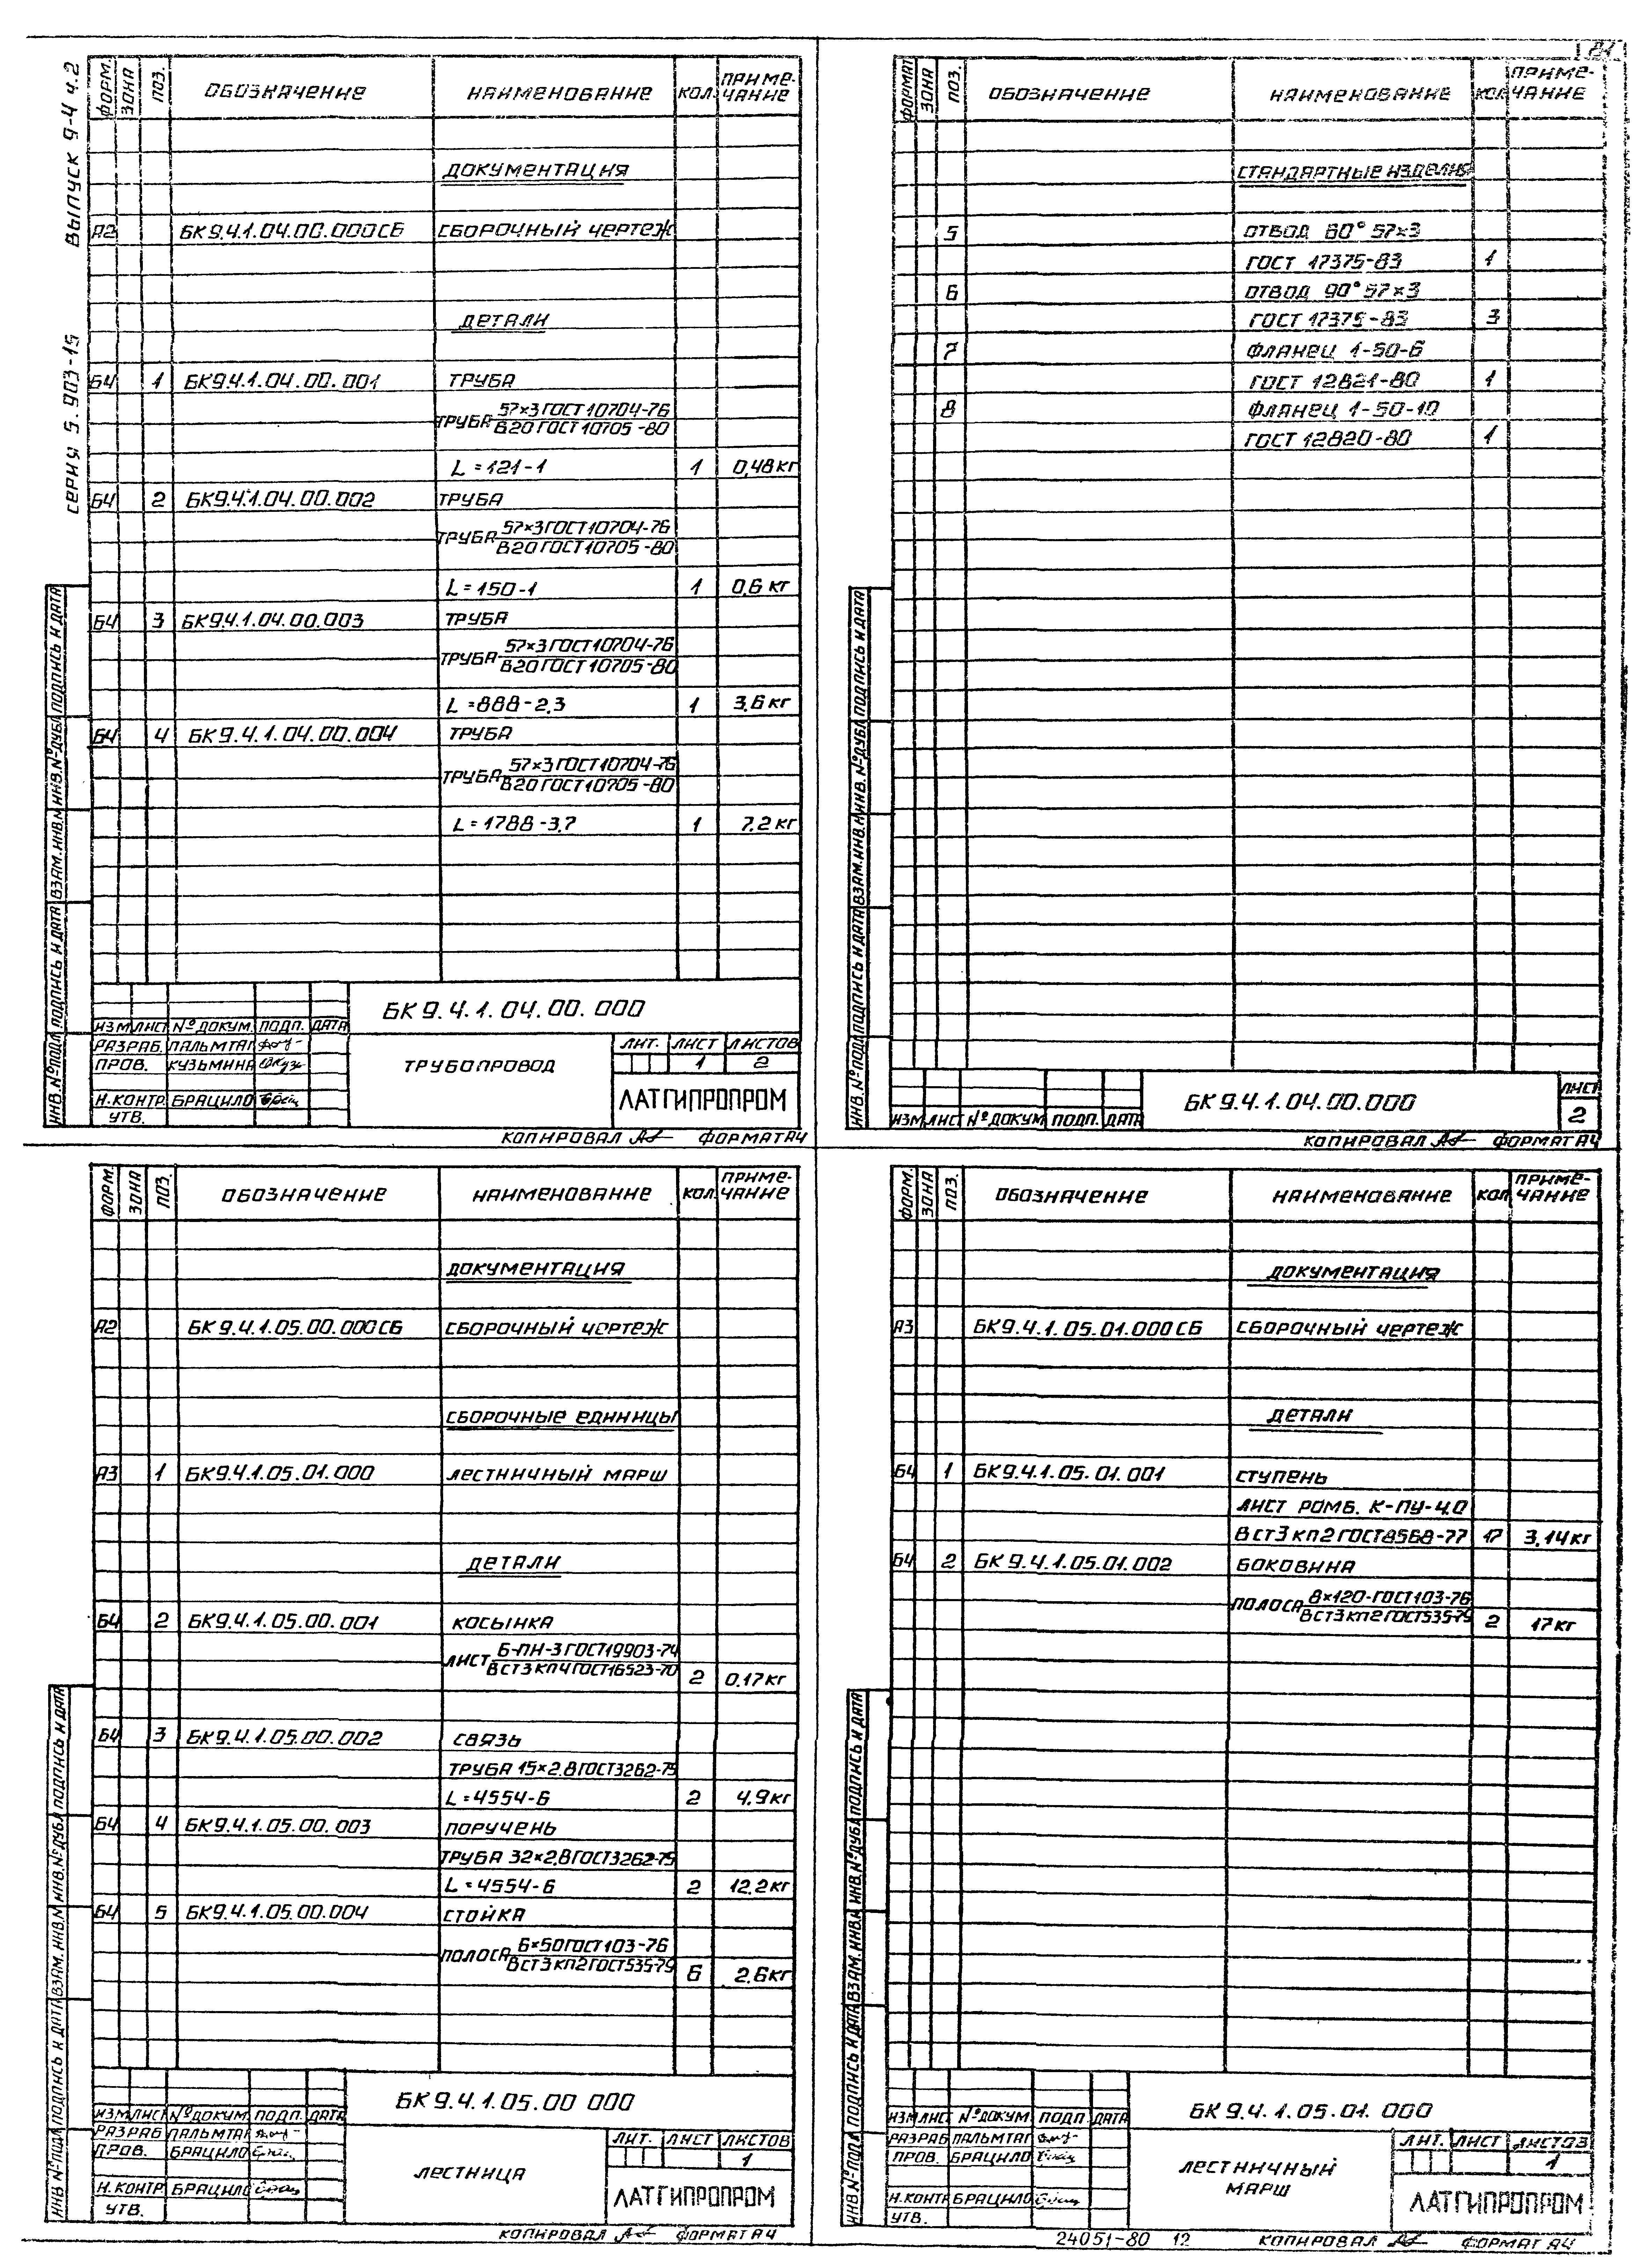 серия 5.903-15 Выпуск 9-4 ч.2
21
ФОРМ. ЗОНА ПОЗ. ОБОЗНАЧЕНИЕ НАИМЕНОВАНИЕ КОЛ. ПРИМЕ-
ЧАНИЕ
ДОКУМЕНТАЦИЯ
А2 БК9.4.1.04.00.000СБ СБОРОЧНЫЙ ЧЕРТЕЖ
ДЕТАЛИ
Б4 1 БК9.4.1.04.00.001 ТРУБА
ТРУБА 57×3 ГОСТ 10704-76
В20 ГОСТ 10705-80
L=121-1 1 0,48 кг
Б4 2 БК9.4.1.04.00.002 ТРУБА
ТРУБА 57×3 ГОСТ 10704-76
В20 ГОСТ 10705-80
L=150-1 1 0,6 кг
Б4 3 БК9.4.1.04.00.003 ТРУБА
ТРУБА 57×3 ГОСТ 10704-76
В20 ГОСТ 10705-80
L=888-2,3 1 3,6 кг
Б4 4 БК9.4.1.04.00.004 ТРУБА
ТРУБА 57×3 ГОСТ 10704-76
В20 ГОСТ 10705-80
L=1788-3,7 1 7,2 кг
ИНВ.№ПОДЛ ПОДПИСЬ И ДАТА ВЗАМ.ИНВ.№ ИНВ.№ДУБЛ ПОДПИСЬ И ДАТА
БК9.4.1.04.00.000
ИЗМ ЛИСТ №ДОКУМ. ПОДП. ДАТА
РАЗРАБ. ПАЛЬМТАГ
ПРОВ. КУЗЬМИНА
Н.КОНТР БРАЦИЛО
УТВ.
ТРУБОПРОВОД
ЛИТ. ЛИСТ ЛИСТОВ
1 2
ЛАТГИПРОПРОМ
КОПИРОВАЛ ФОРМАТ А4
ФОРМАТ ЗОНА ПОЗ. ОБОЗНАЧЕНИЕ НАИМЕНОВАНИЕ КОЛ ПРИМЕ-
ЧАНИЕ
СТАНДАРТНЫЕ ИЗДЕЛИЯ
5 ОТВОД 60° 57×3
ГОСТ 17375-83 1
6 ОТВОД 90° 57×3
ГОСТ 17375-83 3
7 ФЛАНЕЦ 1-50-6
ГОСТ 12821-80 1
8 ФЛАНЕЦ 1-50-10
ГОСТ 12820-80 1
ИНВ.№ПОДЛ ПОДПИСЬ И ДАТА ВЗАМ.ИНВ.№ ИНВ.№ДУБЛ ПОДПИСЬ И ДАТА
ИЗМ ЛИСТ №ДОКУМ ПОДП. ДАТА
БК9.4.1.04.00.000
ЛИСТ
2
КОПИРОВАЛ ФОРМАТ А4
ФОРМ. ЗОНА ПОЗ. ОБОЗНАЧЕНИЕ НАИМЕНОВАНИЕ КОЛ ПРИМЕ-
ЧАНИЕ
ДОКУМЕНТАЦИЯ
А2 БК9.4.1.05.00.000СБ СБОРОЧНЫЙ ЧЕРТЕЖ
СБОРОЧНЫЕ ЕДИНИЦЫ
А3 1 БК9.4.1.05.01.000 ЛЕСТНИЧНЫЙ МАРШ
ДЕТАЛИ
Б4 2 БК9.4.1.05.00.001 КОСЫНКА
ЛИСТ Б-ПН-3 ГОСТ19903-74
ВСТ3кп4 ГОСТ16523-70 2 0,17 кг
Б4 3 БК9.4.1.05.00.002 СВЯЗЬ
ТРУБА 15×2,8 ГОСТ3262-75
L=4554-6 2 4,9 кг
Б4 4 БК9.4.1.05.00.003 ПОРУЧЕНЬ
ТРУБА 32×2,8 ГОСТ3262-75
L=4554-6 2 12,2 кг
Б4 5 БК9.4.1.05.00.004 СТОЙКА
ПОЛОСА 6×50 ГОСТ103-76
ВСТ3кп2 ГОСТ535-79 6 2,6 кг
ИНВ №ПОДЛ ПОДПИСЬ И ДАТА ВЗАМ.ИНВ.№ ИНВ.№ДУБЛ ПОДПИСЬ И ДАТА
БК9.4.1.05.00 000
ИЗМ ЛИСТ №ДОКУМ. ПОДП. ДАТА
РАЗРАБ ПАЛЬМТАГ
ПРОВ. БРАЦИЛО
Н.КОНТР БРАЦИЛО
УТВ.
ЛЕСТНИЦА
ЛИТ. ЛИСТ ЛИСТОВ
1
ЛАТГИПРОПРОМ
КОПИРОВАЛ ФОРМАТ А4
ФОРМ. ЗОНА ПОЗ. ОБОЗНАЧЕНИЕ НАИМЕНОВАНИЕ КОЛ ПРИМЕ-
ЧАНИЕ
ДОКУМЕНТАЦИЯ
А3 БК9.4.1.05.01.000СБ СБОРОЧНЫЙ ЧЕРТЕЖ
ДЕТАЛИ
Б4 1 БК9.4.1.05.01.001 СТУПЕНЬ
ЛИСТ РОМБ. К-ПУ-4,0
ВСТ3кп2 ГОСТ8568-77 17 3,14 кг
Б4 2 БК9.4.1.05.01.002 БОКОВИНА
ПОЛОСА 8×120-ГОСТ103-76
ВСТ3кп2 ГОСТ535-79 2 17 кг
ИНВ №ПОДЛ ПОДПИСЬ И ДАТА ВЗАМ.ИНВ.№ ИНВ.№ДУБЛ ПОДПИСЬ И ДАТА
БК9.4.1.05.01.000
ИЗМ ЛИСТ №ДОКУМ ПОДП ДАТА
РАЗРАБ ПАЛЬМТАГ
ПРОВ. БРАЦИЛО
Н.КОНТР БРАЦИЛО
УТВ.
ЛЕСТНИЧНЫЙ
МАРШ
ЛИТ. ЛИСТ ЛИСТОВ
1
ЛАТГИПРОПРОМ
24051-80 12 КОПИРОВАЛ ФОРМАТ А4